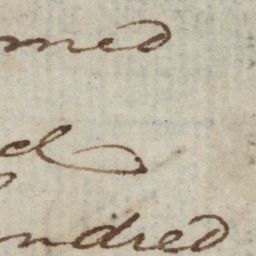 med
el
ndred